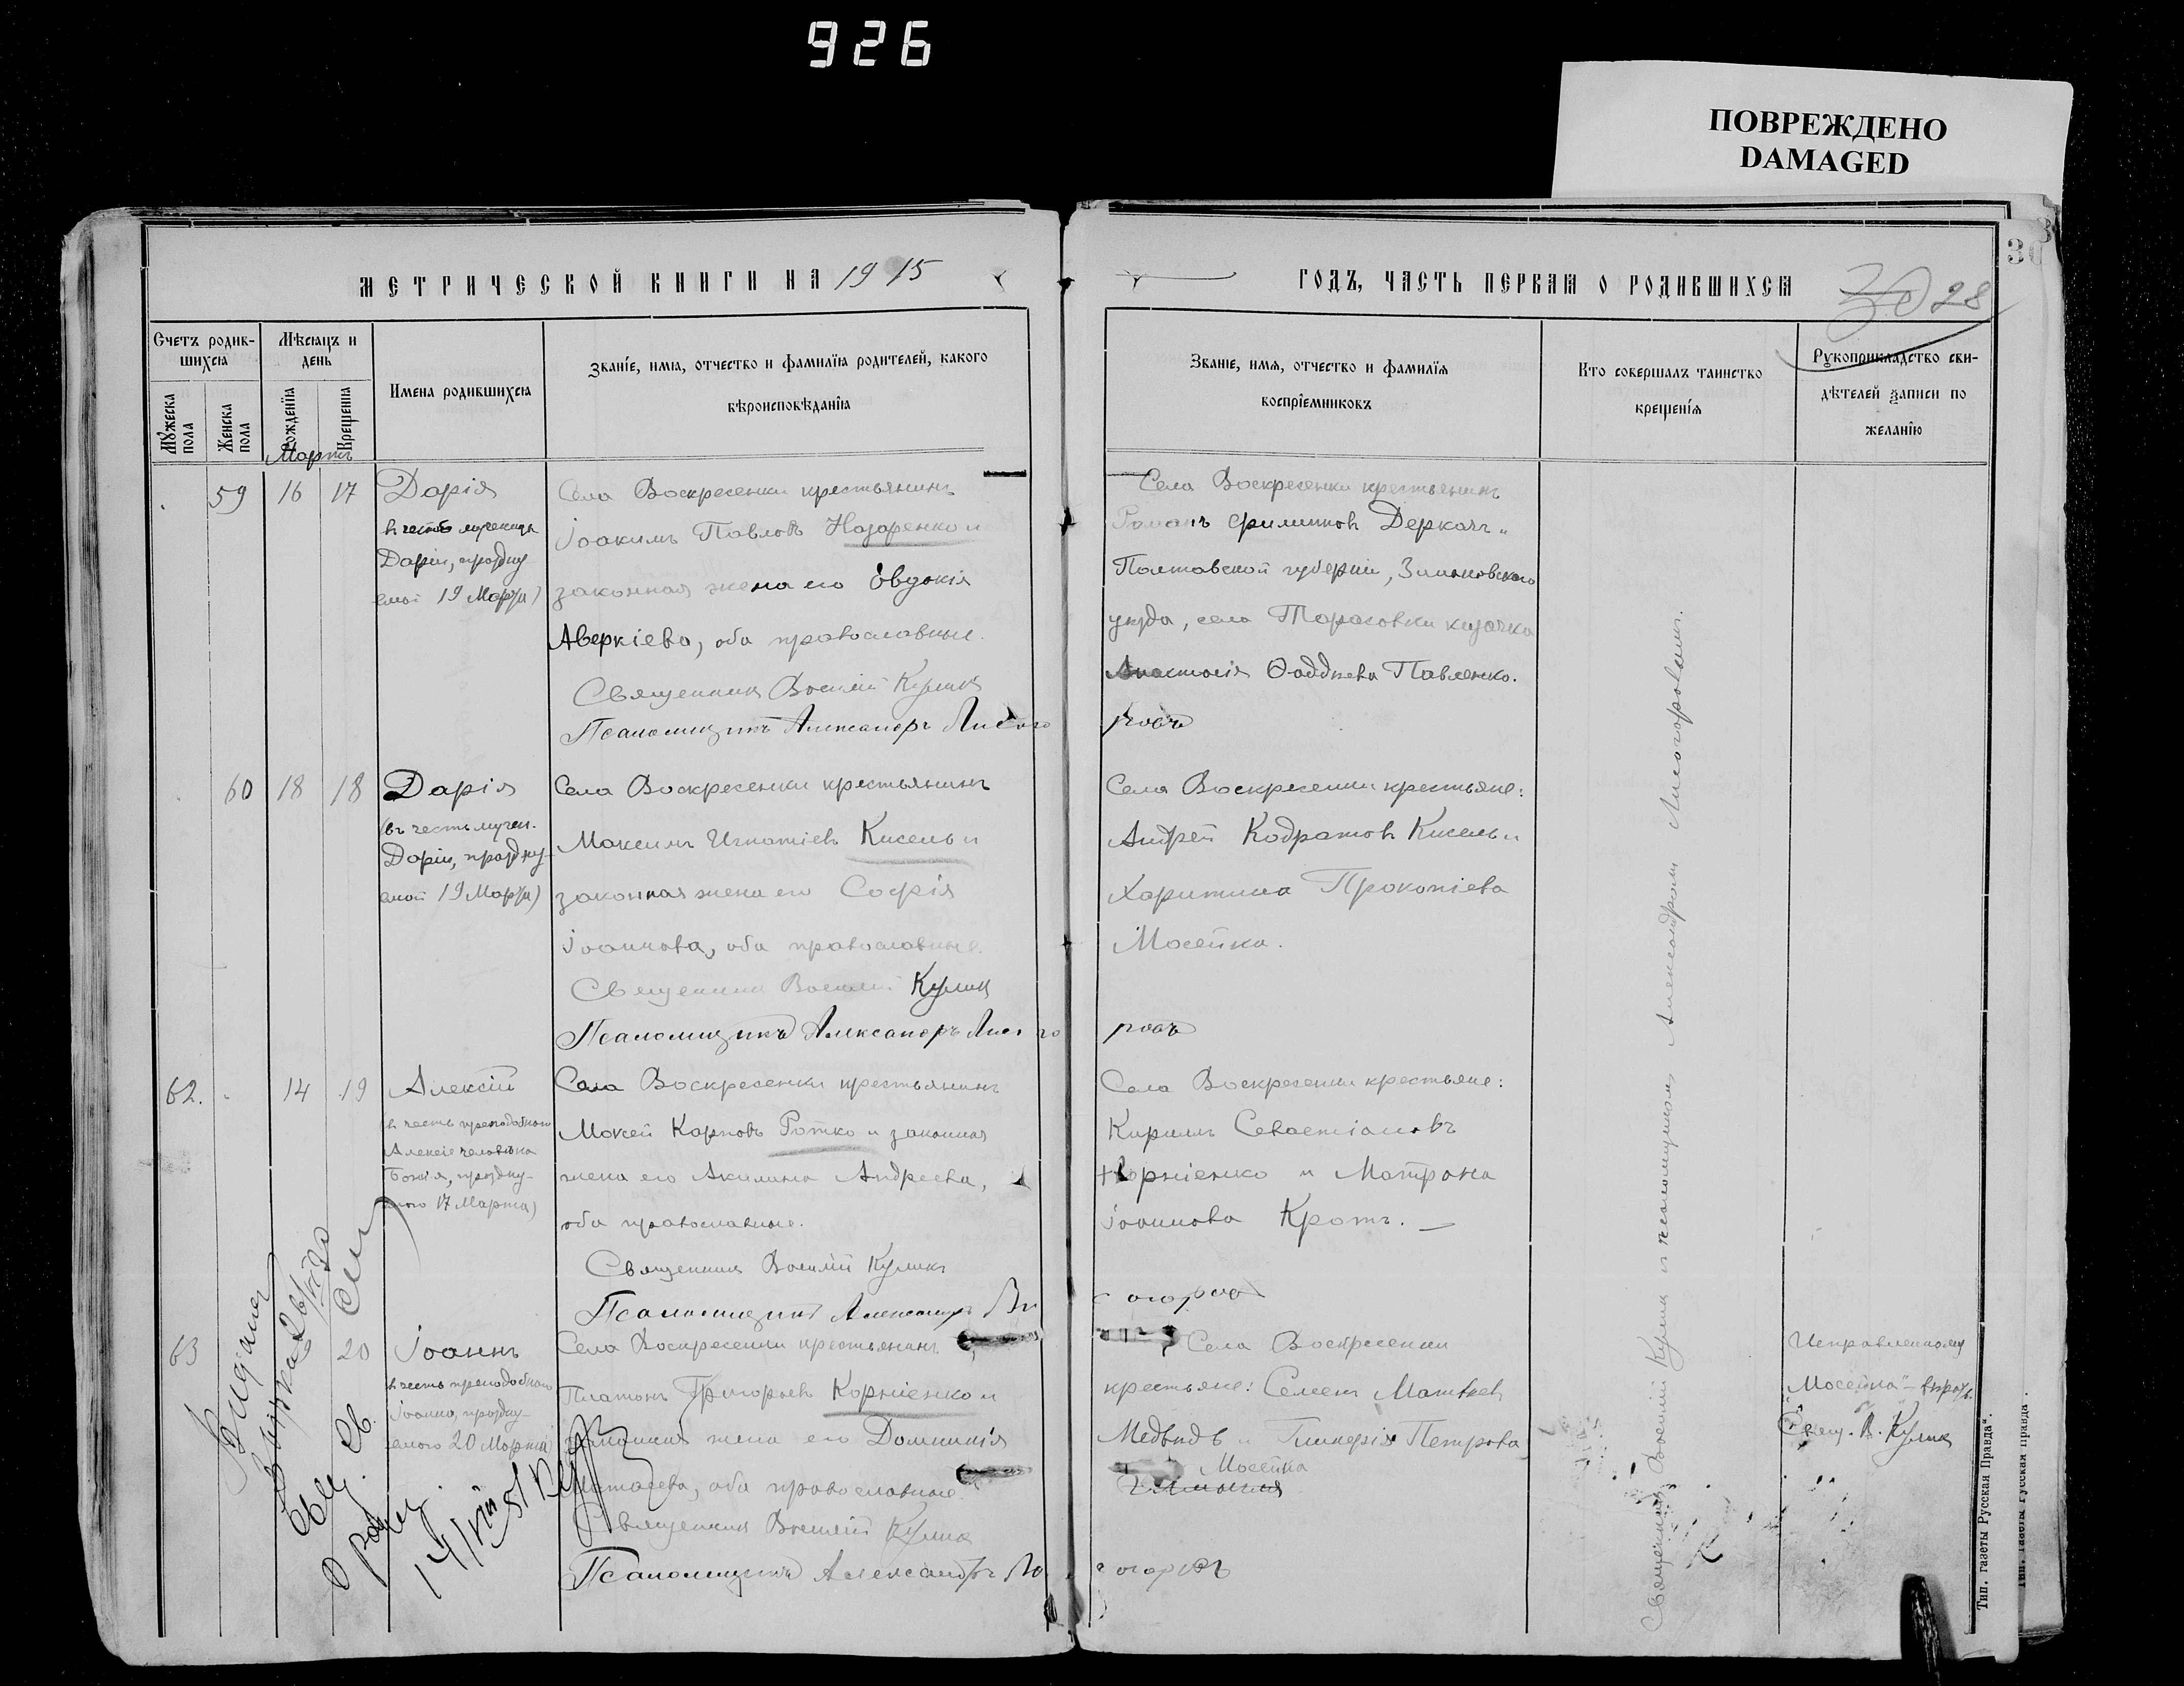 926
ПОВРЕЖДЕНО
DAMAGED
МЕТРИЧЕСКОЙ КНИГИ НА 1915
ГОДЪ, ЧАСТЬ ПЕРВАЯ О РОДИВШИХСЯ
28
30
Счетъ родив-
шихся
Мѣсяцъ и
день
Мужеска
пола
Женска
пола
Рожденїя
Крещенїя
Имена родившихся
Званїе, имя, отчество и фамилїя родителей, какого
вѣроисповѣданїя
Званїе, имя, отчество и фамилїя
воспрїемниковъ
Кто совершалъ таинство
крещенїя
Рукоприкладство сви-
дѣтелей записи по
желанїю
Мартъ
59 16 17
Дарія
въ честь мученицы
Даріи, праздну
емой 19 Марта)
Села Воскресенки крестьянинъ
Іоакимъ Павловъ Назаренко и
законная жена его Евдокія
Аверкіева, оба православные.
Священникъ Василій Куликъ
Псаломщикъ Александръ Лисого
Села Воскресенки крестьянинъ
Романъ Филиповъ Деркачъ и
Полтавской губерніи, Зиньковскаго
уѣзда, села Тарасовки казачка
Анастасія Фаддѣева Павленко.
ровъ
60 18 18
Дарія
(въ честь мучен.
Даріи, праздну-
емой 19 Марта)
Села Воскресенки крестьянинъ
Максимъ Игнатіевъ Кисель и
законная жена его Софія
Іоаннова, оба православные.
Священникъ Василій Куликъ
Псаломщикъ Александръ Лисого
Села Воскресенки крестьяне:
Андрей Кодратовъ Кисель и
Харитина Прокопіева
Мосейка.
ровъ
62. 14 19
Алексій
въ честь преподобнаго
Алексія человѣка
Божія, праздну-
емаго 17 Марта)
Села Воскресенки крестьянинъ
Моисей Карповъ Ротко и законная
жена его Акилина Андреева,
оба православные.
Священникъ Василій Куликъ
Псаломщикъ Александръ Ли
Села Воскресенки крестьяне:
Кириллъ Севастіановъ
Корніенко и Матрона
Іоаннова Кротъ.
согоровъ
63 20
Іоаннъ
въ честь преподобнаго
Іоанна, праздну-
емаго 20 Марта)
Села Воскресенки крестьянинъ
Платонъ Григорьевъ Корніенко и
законная жена его Домникія
оба православные.
Священникъ Василій Куликъ
Псаломщикъ Александръ Ли
Села Воскресенки
крестьяне: Семенъ Матвѣевъ
Медвѣдь и Гликерія Петрова
Мосейка
согоровъ
Исправленному
"Мосейка" - вѣрить.
Свящ. В. Куликъ
Священникъ Василій Куликъ и псаломщикомъ Александромъ Лисогоровымъ.
Видана
Тип. газеты Русская Правда".
Тип. газеты Русская Правда".